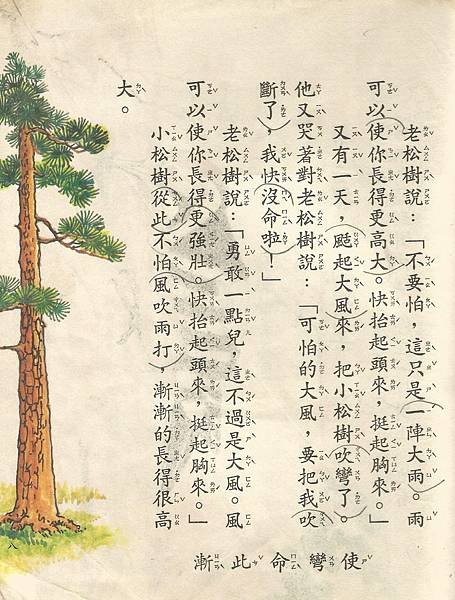 老松樹說：「不要怕，這只是一陣大雨。雨
可以使你長得更高大。快抬起頭來，挺起胸來。」
又有一天，颳起大風來，把小松樹吹彎了。
他又哭著對老松樹說：「可怕的大風，要把我吹
斷了，我快沒命啦！」
老松樹說：「勇敢一點兒，這不過是大風。風
可以使你長得更強壯。快抬起頭來，挺起胸來。」
小松樹從此不怕風吹雨打，漸漸的長得很高
大。
使 彎 命 此 漸
八